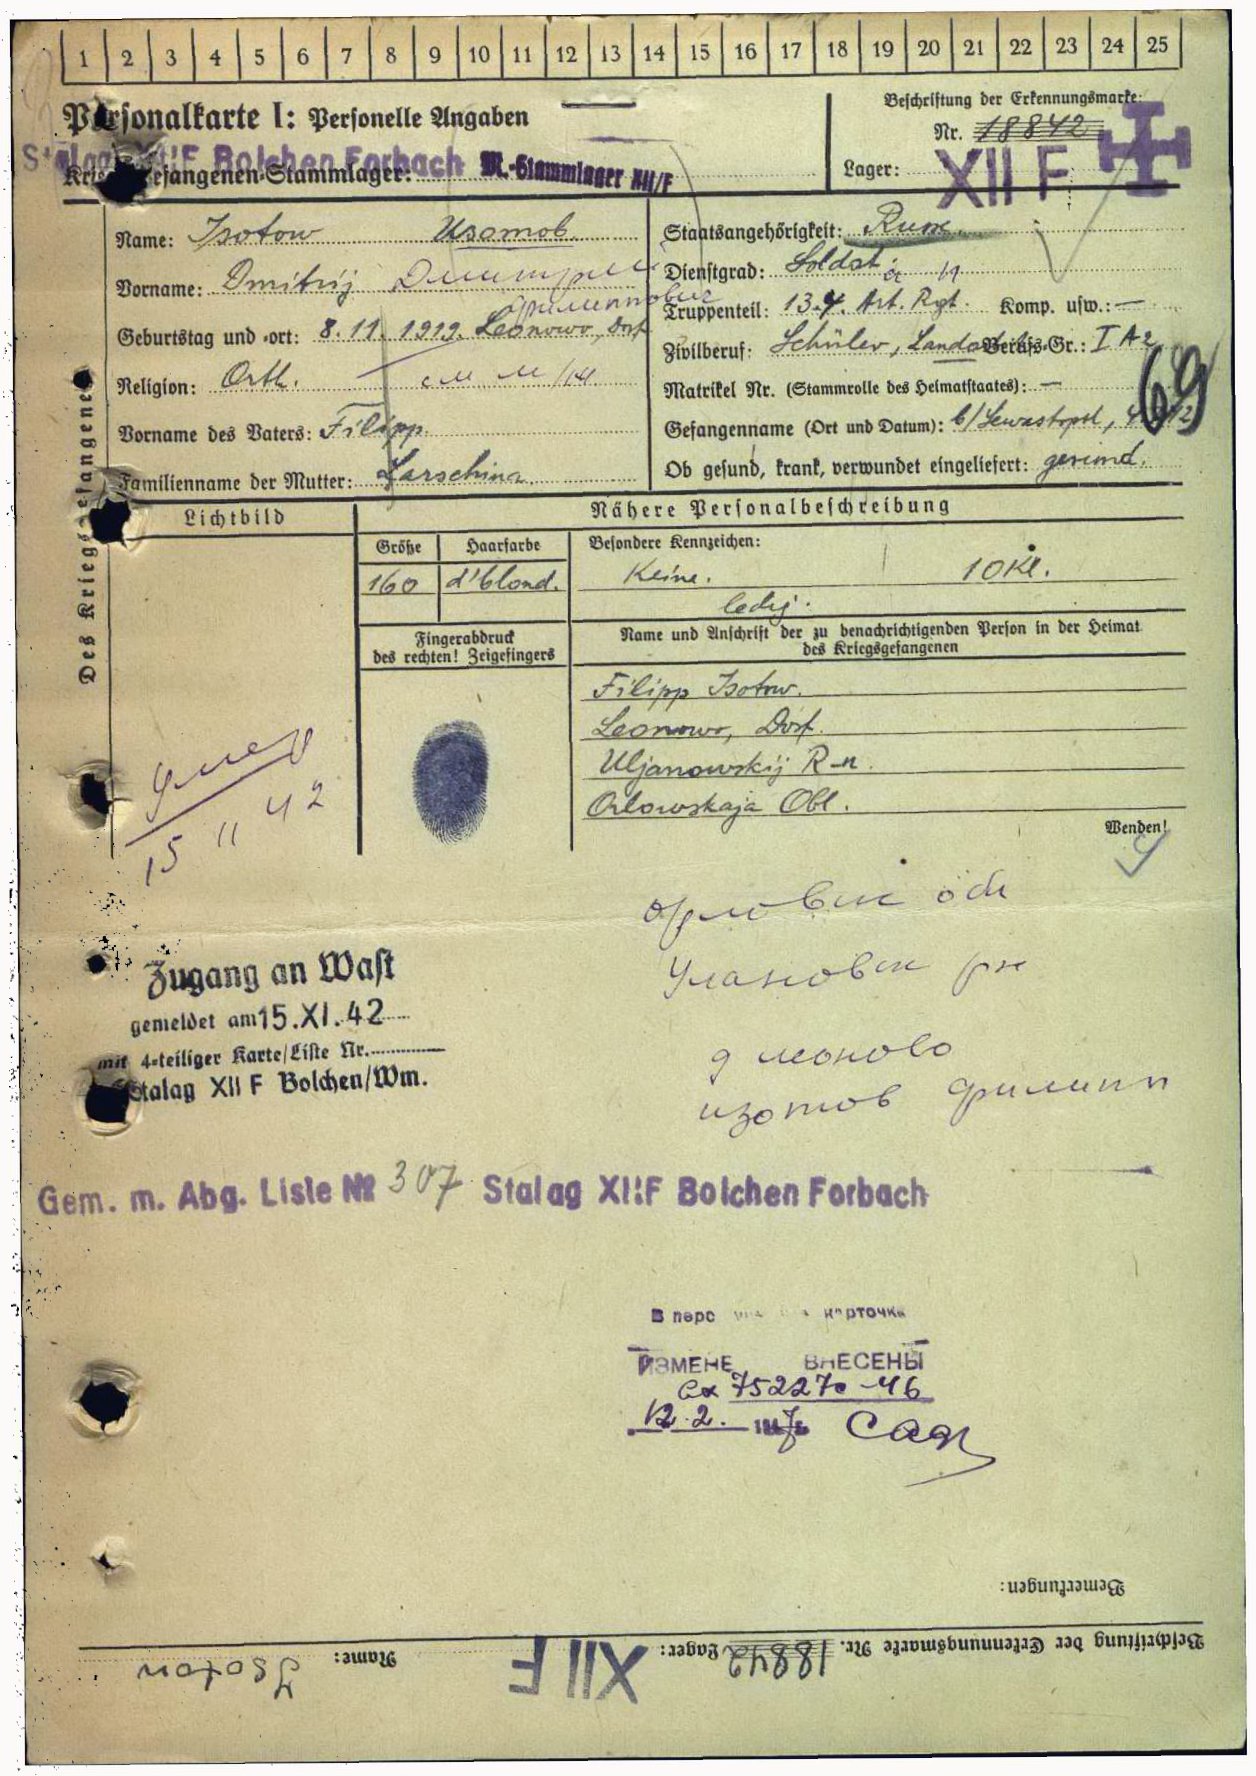 1 2 3 4 5 6 7 8 9 10 11 12 13 14 15 16 17 18 19 20 21 22 23 24 25
Personalkarte I: Personelle Angaben
Beschriftung der Erkennungsmarke:
Nr. 18842
Stalag XII F Bolchen Forbach
Kriegsgefangenen-Stammlager: M.-Stammlager XII/F
Lager: XII F
Des Kriegsgefangenen
Name: Isotow Изотов
Vorname: Dmitrij Дмитрий
Филиппович
Geburtstag und -ort: 8.11.1919. Leonowo, Dorf
Religion: Orth.
Vorname des Vaters: Filipp.
Familienname der Mutter: Larschina.
Staatsangehörigkeit: Russe.
Dienstgrad: Soldat
Truppenteil: 13. Art. Rgt. Komp. usw.: —
Zivilberuf: Schüler, Berufs-Gr.: I A2
69
Matrikel Nr. (Stammrolle des Heimatstaates): —
Gefangenname (Ort und Datum): b/Sewastopol,
Ob gesund, krank, verwundet eingeliefert: gesund.
Lichtbild
Nähere Personalbeschreibung
Größe Haarfarbe Besondere Kennzeichen:
160 d'blond. Keine. 10 Kl.
ledig.
Fingerabdruck
des rechten! Zeigefingers
Name und Anschrift der zu benachrichtigenden Person in der Heimat
des Kriegsgefangenen
Filipp Isotow.
Leonowo, Dorf.
Uljanowskij R-n.
Orlowskaja Obl.
Wenden!
умер
15 11 42
орловск обл
Улановск рн
д леоново
изотов филипп
Zugang an Wast
gemeldet am 15.XI.42
mit 4-teiliger Karte/Liste Nr.
Stalag XII F Bolchen/Wm.
Gem. m. Abg. Liste № 307 Stalag XII F Bolchen Forbach
В перс карточк
ИЗМЕНЕ ВНЕСЕНЫ
752270-46
12.2.
Bemerkungen:
Beschriftung der Erkennungsmarke Nr. 18842 Lager: XII F Name: Isotow